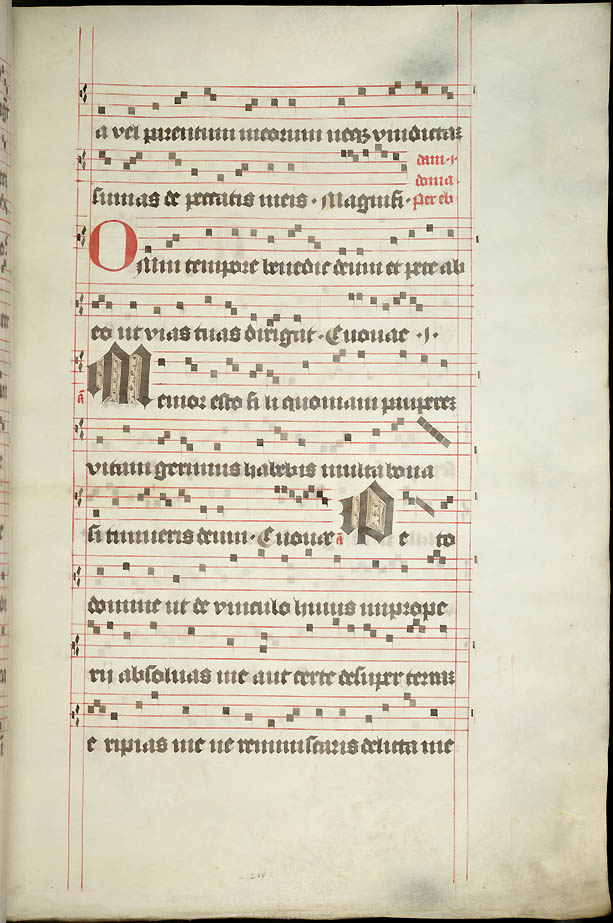 a vel parentum meorum neq3 vindictaz
sumas de peccatis meis · Magnifi ·
dom · j ·
Omni tempore benedic deum et pete ab
eo ut vias tuas dirigat · Euouae · j ·
ā Memor esto fili quoniam pauperez
vitam gerimus habebis multa bona
si timueris deum · Euouae ā Pe to
domine ut de vinculo huius imprope
rii absoluas me aut certe desuper terraz
e ripias me ne reminiscaris delicta me